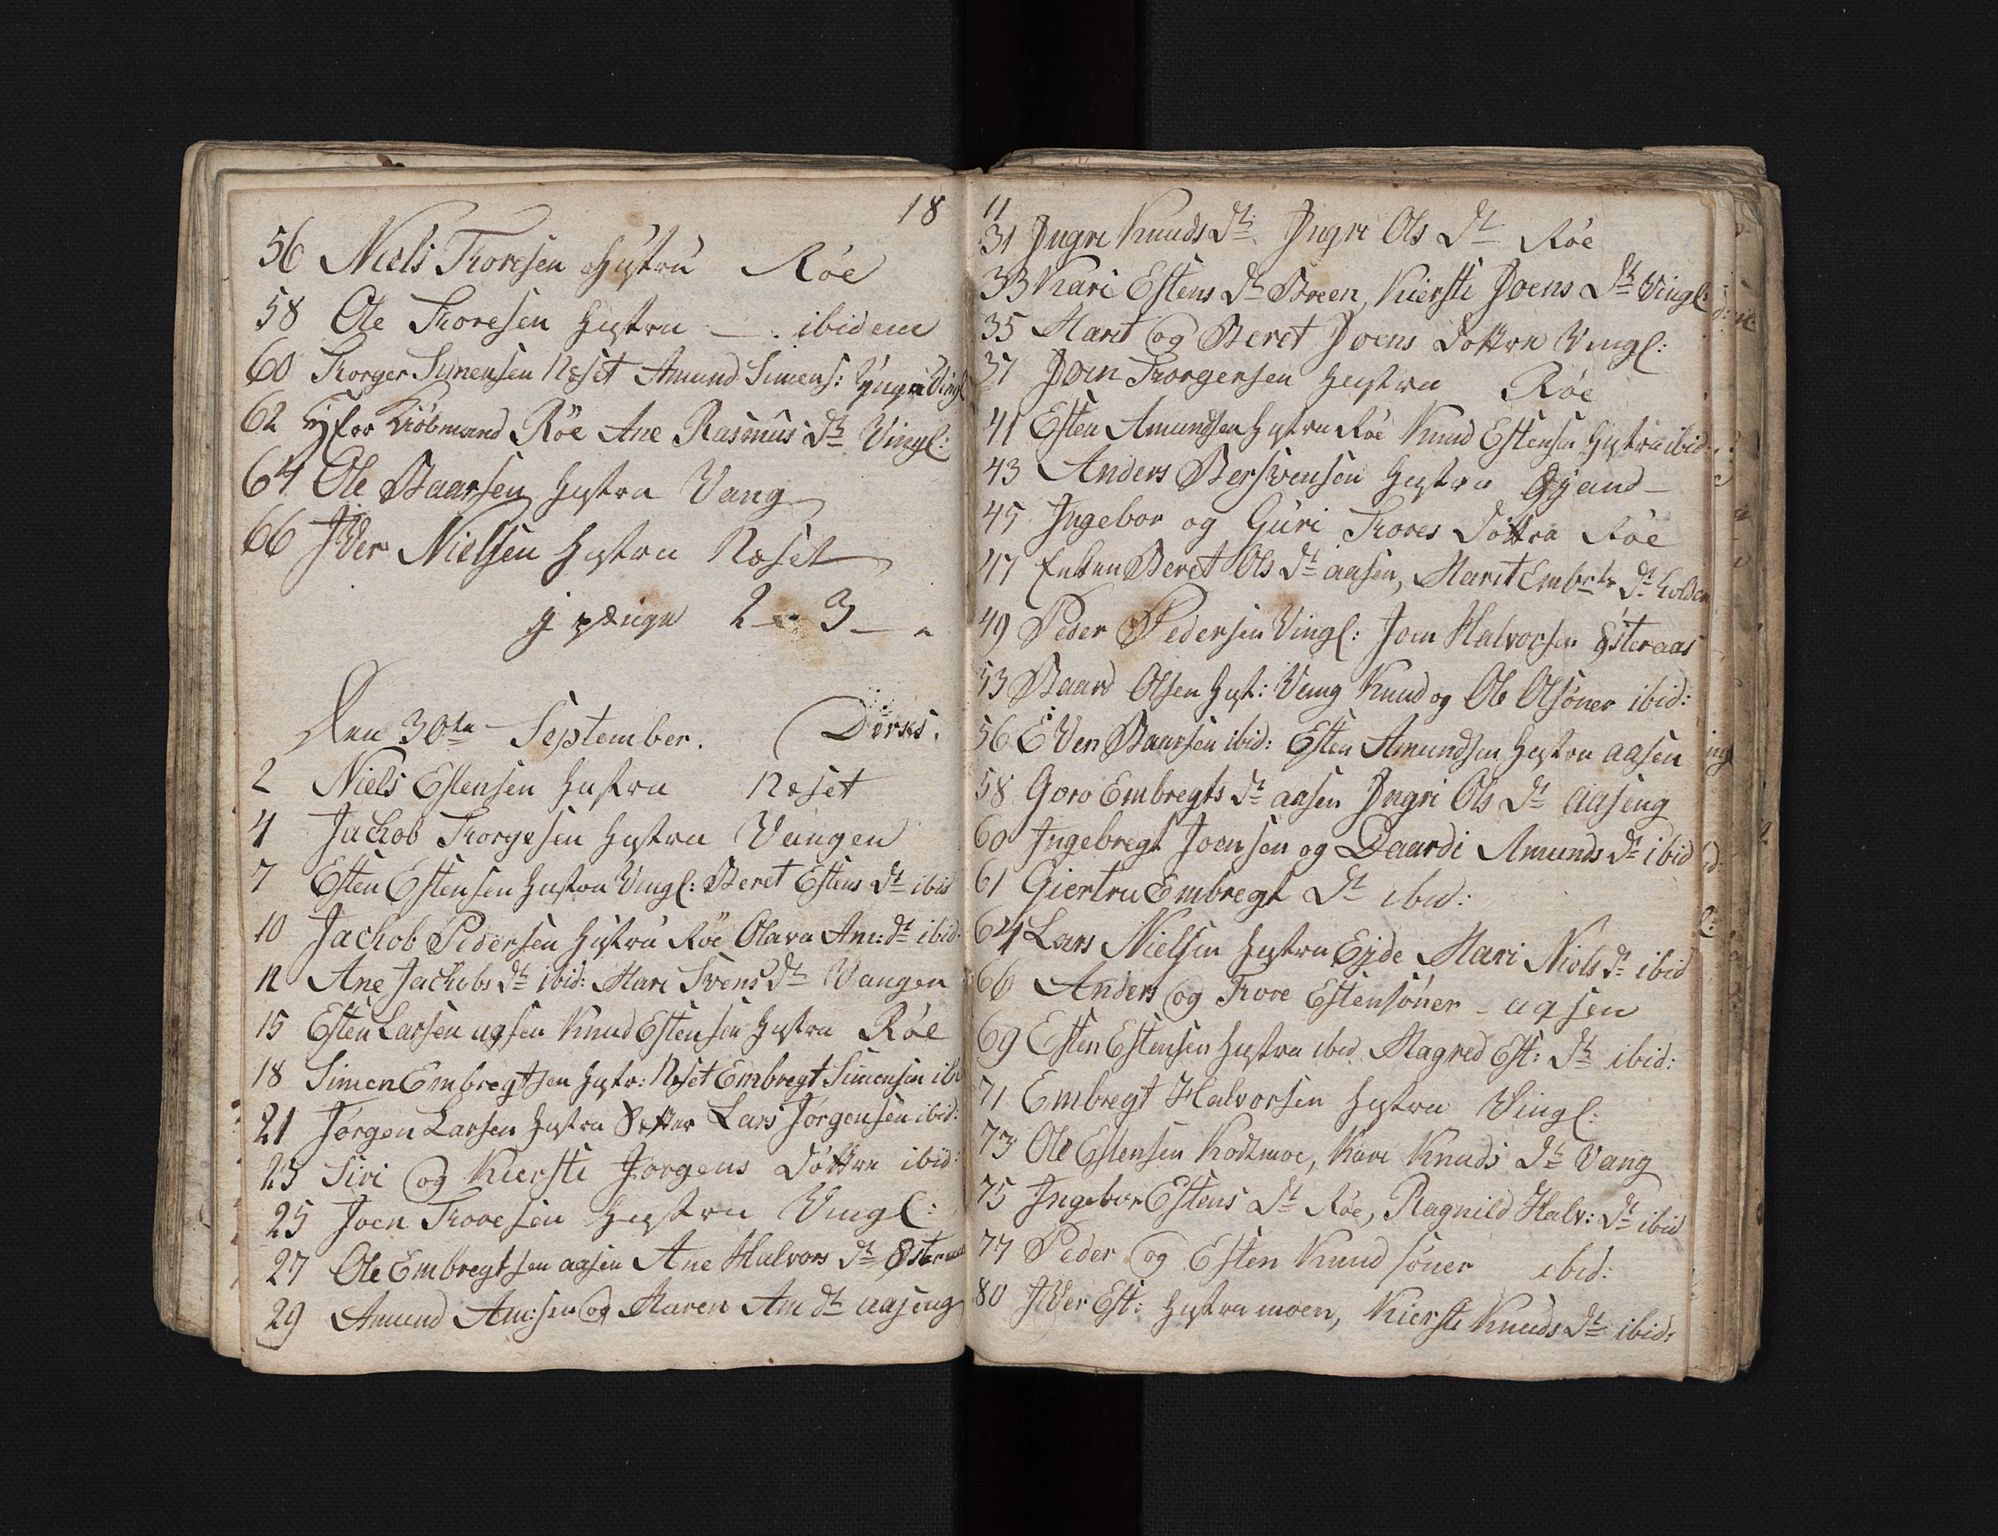 18
56 Niels Toresen Hustru Røe
58 Ole Toresen Hustru — ibidem
60 Torger Simensen Næset Amund Simens: Vingl
62 Kiøbmand Røe Ane Rasmus Dt Vingl:
64 Ole Baarsen Hustru Vang
66 IVer Nielsen Hustru Næset
j penge 2 — 3 —
Den 30te September. Dirks.
2 Niels Estensen Hustru Næset
4 Jachob Torgesen Hustru Vangen
7 Esten Estensen Hustru Vingl: Beret Estens Dt ibid
10 Jachob Pedersen Hustru Røe Olava Am: dt ibid:
12 Ane Jachobs Dt ibid: Mari Svens Dt Vangen
15 Esten Larsen aasen Knud Estensen Hustru Røe
18 Simen Embregtsen Hustr: Næset Embregt Simensen ibi
21 Jørgen Larsen Hustru Lars Jørgensen ibid:
23 Siri og Kiersti Jørgens Døttre ibid:
25 Joen Toresen Hustru Vingl:
27 Ole Embregtsen aasen Ane Halvors Dt
29 Amund Am:sen og Karen Am Dt aaseng
11
31 Jngri Knuds Dt: Jngri Ols Dt Røe
33 Kari Estens Dt Breen, Kiersti Joens Dt Vingl:
35 Marit og Beret Joens Døttre Vingl:
37 Joen Torgersen Hustru Røe
41 Esten Amundsen Hustru Røe Knud Estensen Hustru ibid:
43 Anders Bersvensen Hustru
45 Jngebor og Guri Tores Døttre Røe
47 Enken Beret Ols Dt aasen, Marit Embrts Dt holden
49 Peder Pedersen Vingl: Joen Halvorsen østeraas
53 Baard Olsen Hust: Vang Knud og Ole Olsøner ibid:
56 EVen Baarsen ibid: Esten Amundsen Hustru aasen
58 Goro Embregts Dt aasen Jngri Ols Dt aaseng
60 Jngebregt Joensen og Daardi Amunds Dt ibid
61 Giertru Embregt Dt ibid:
64 Lars Nielsen Hustru Ejde Mari Niels Dt ibid
66 Anders og Tore Estensøner – aasen
69 Esten Estensen Hustru ibid Magred Est: Dt ibid:
71 Embregt Halvorsen Hustru Vingl:
73 Ole Estensen Kodtmoe, Kari Knuds Dt Vang
75 Jngebor Estens Dt Røe, Ragnild Halv: Dt ibid
77 Peder og Esten Knud søner ibid:
80 IVer Est: Hustru moen, Kiersti Knuds Dt ibid: